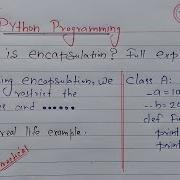 Python Programming
is encapsulation? Full exp
ing encapsulation, we
restrict the
and ......
real life example.
Class A:
_a=10
--b=20
def Fun
print
print